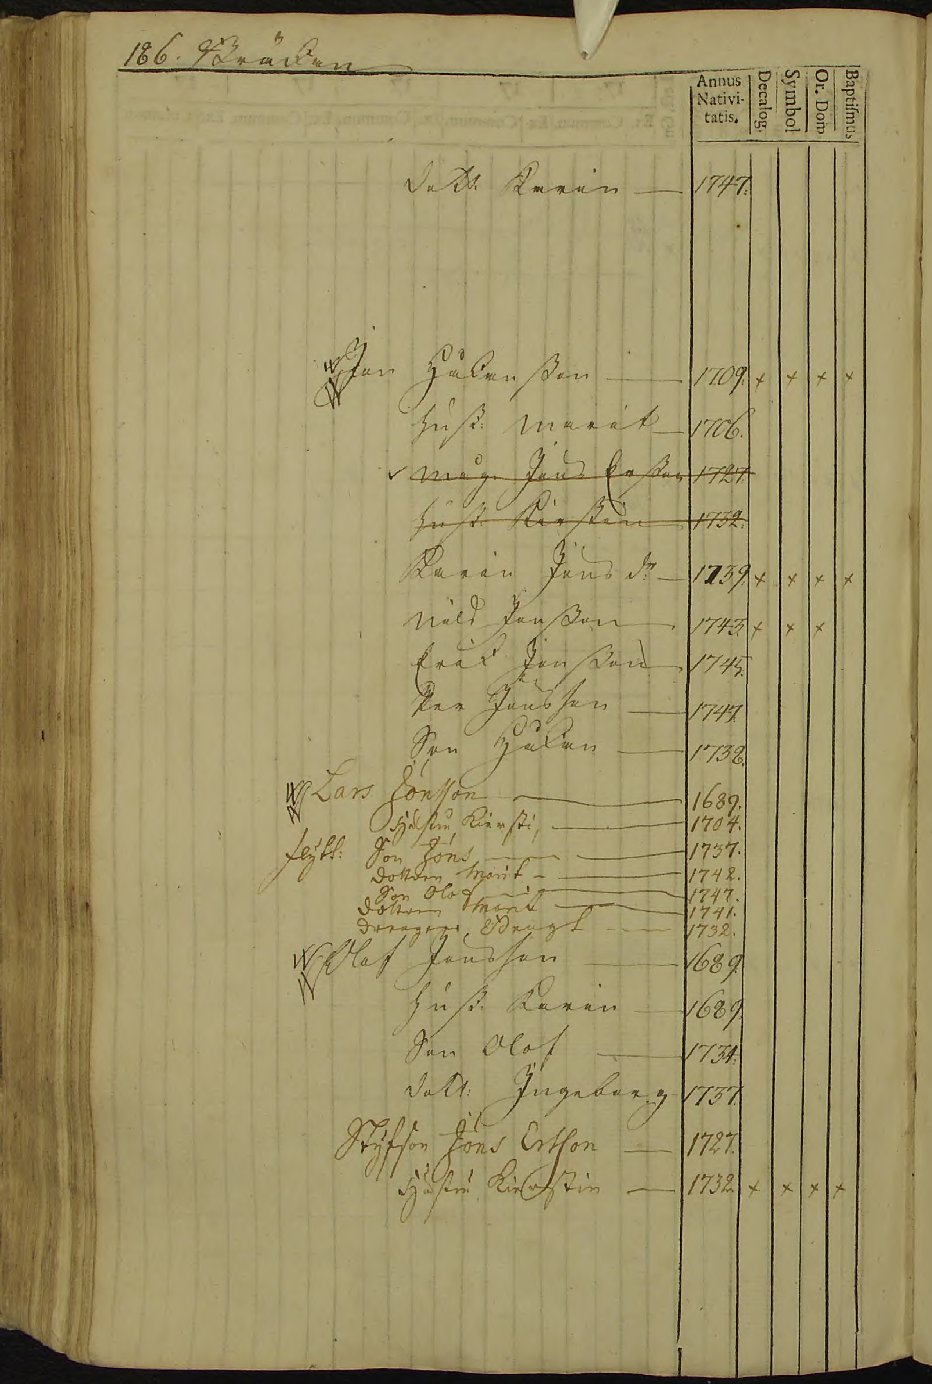 186.
Annus Nativitatis. Decalog. Symbol Or. Dom. Baptismus
dott. Karin 1747.
Jon Håkansson 1709. + + + +
Hust. Marit 1706.
Måg Jöns Ersson 1727.
Hust. Kierstin 1732.
Karin Jöns dr 1739. + + + +
Nils Jonsson 1743. + + +
Erik Jonsson 1745.
Per Jönsson 1747.
Son Håkan 1738.
Lars Jönsson 1689.
Hustru Kiersti, 1704.
flytt: Son Jöns 1737.
Dottren Marit 1742.
Son Olof 1747.
Dottren Marit 1741.
1732.
Olof Jonsson 1689.
Hust. Karin 1689.
Son Olof 1734.
dott: Ingeborg 1737.
Styfson Jöns Ersson 1727.
Hustru Kierstin 1732. + + + +